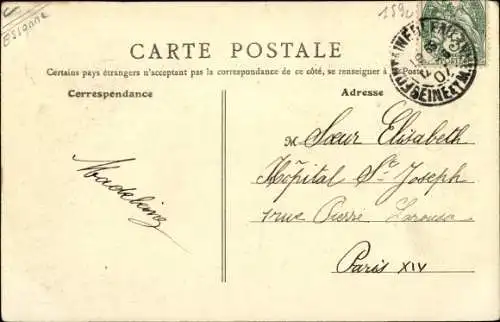 Essonne
1590
CARTE POSTALE
Certains pays étrangers n'acceptant pas la correspondance de ce côté, se renseigner à la Poste
Correspondance
Adresse
Madeleine
M Sœur Elisabeth
Hôpital St Joseph
1 rue Pierre Larousse
Paris XIV
SEINE & M
07